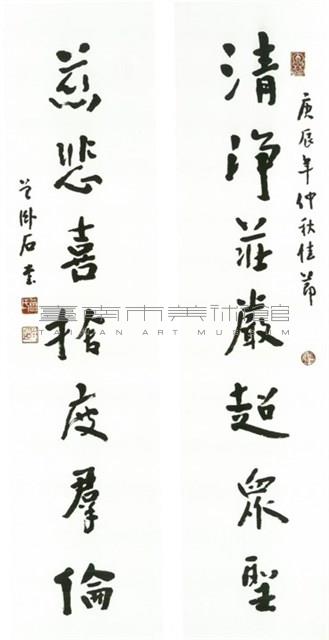 清淨莊嚴超眾聖
庚辰年仲秋佳節
慈悲喜捨度羣倫
臥石書
臺南市美術館
TAINAN ART MUSEUM